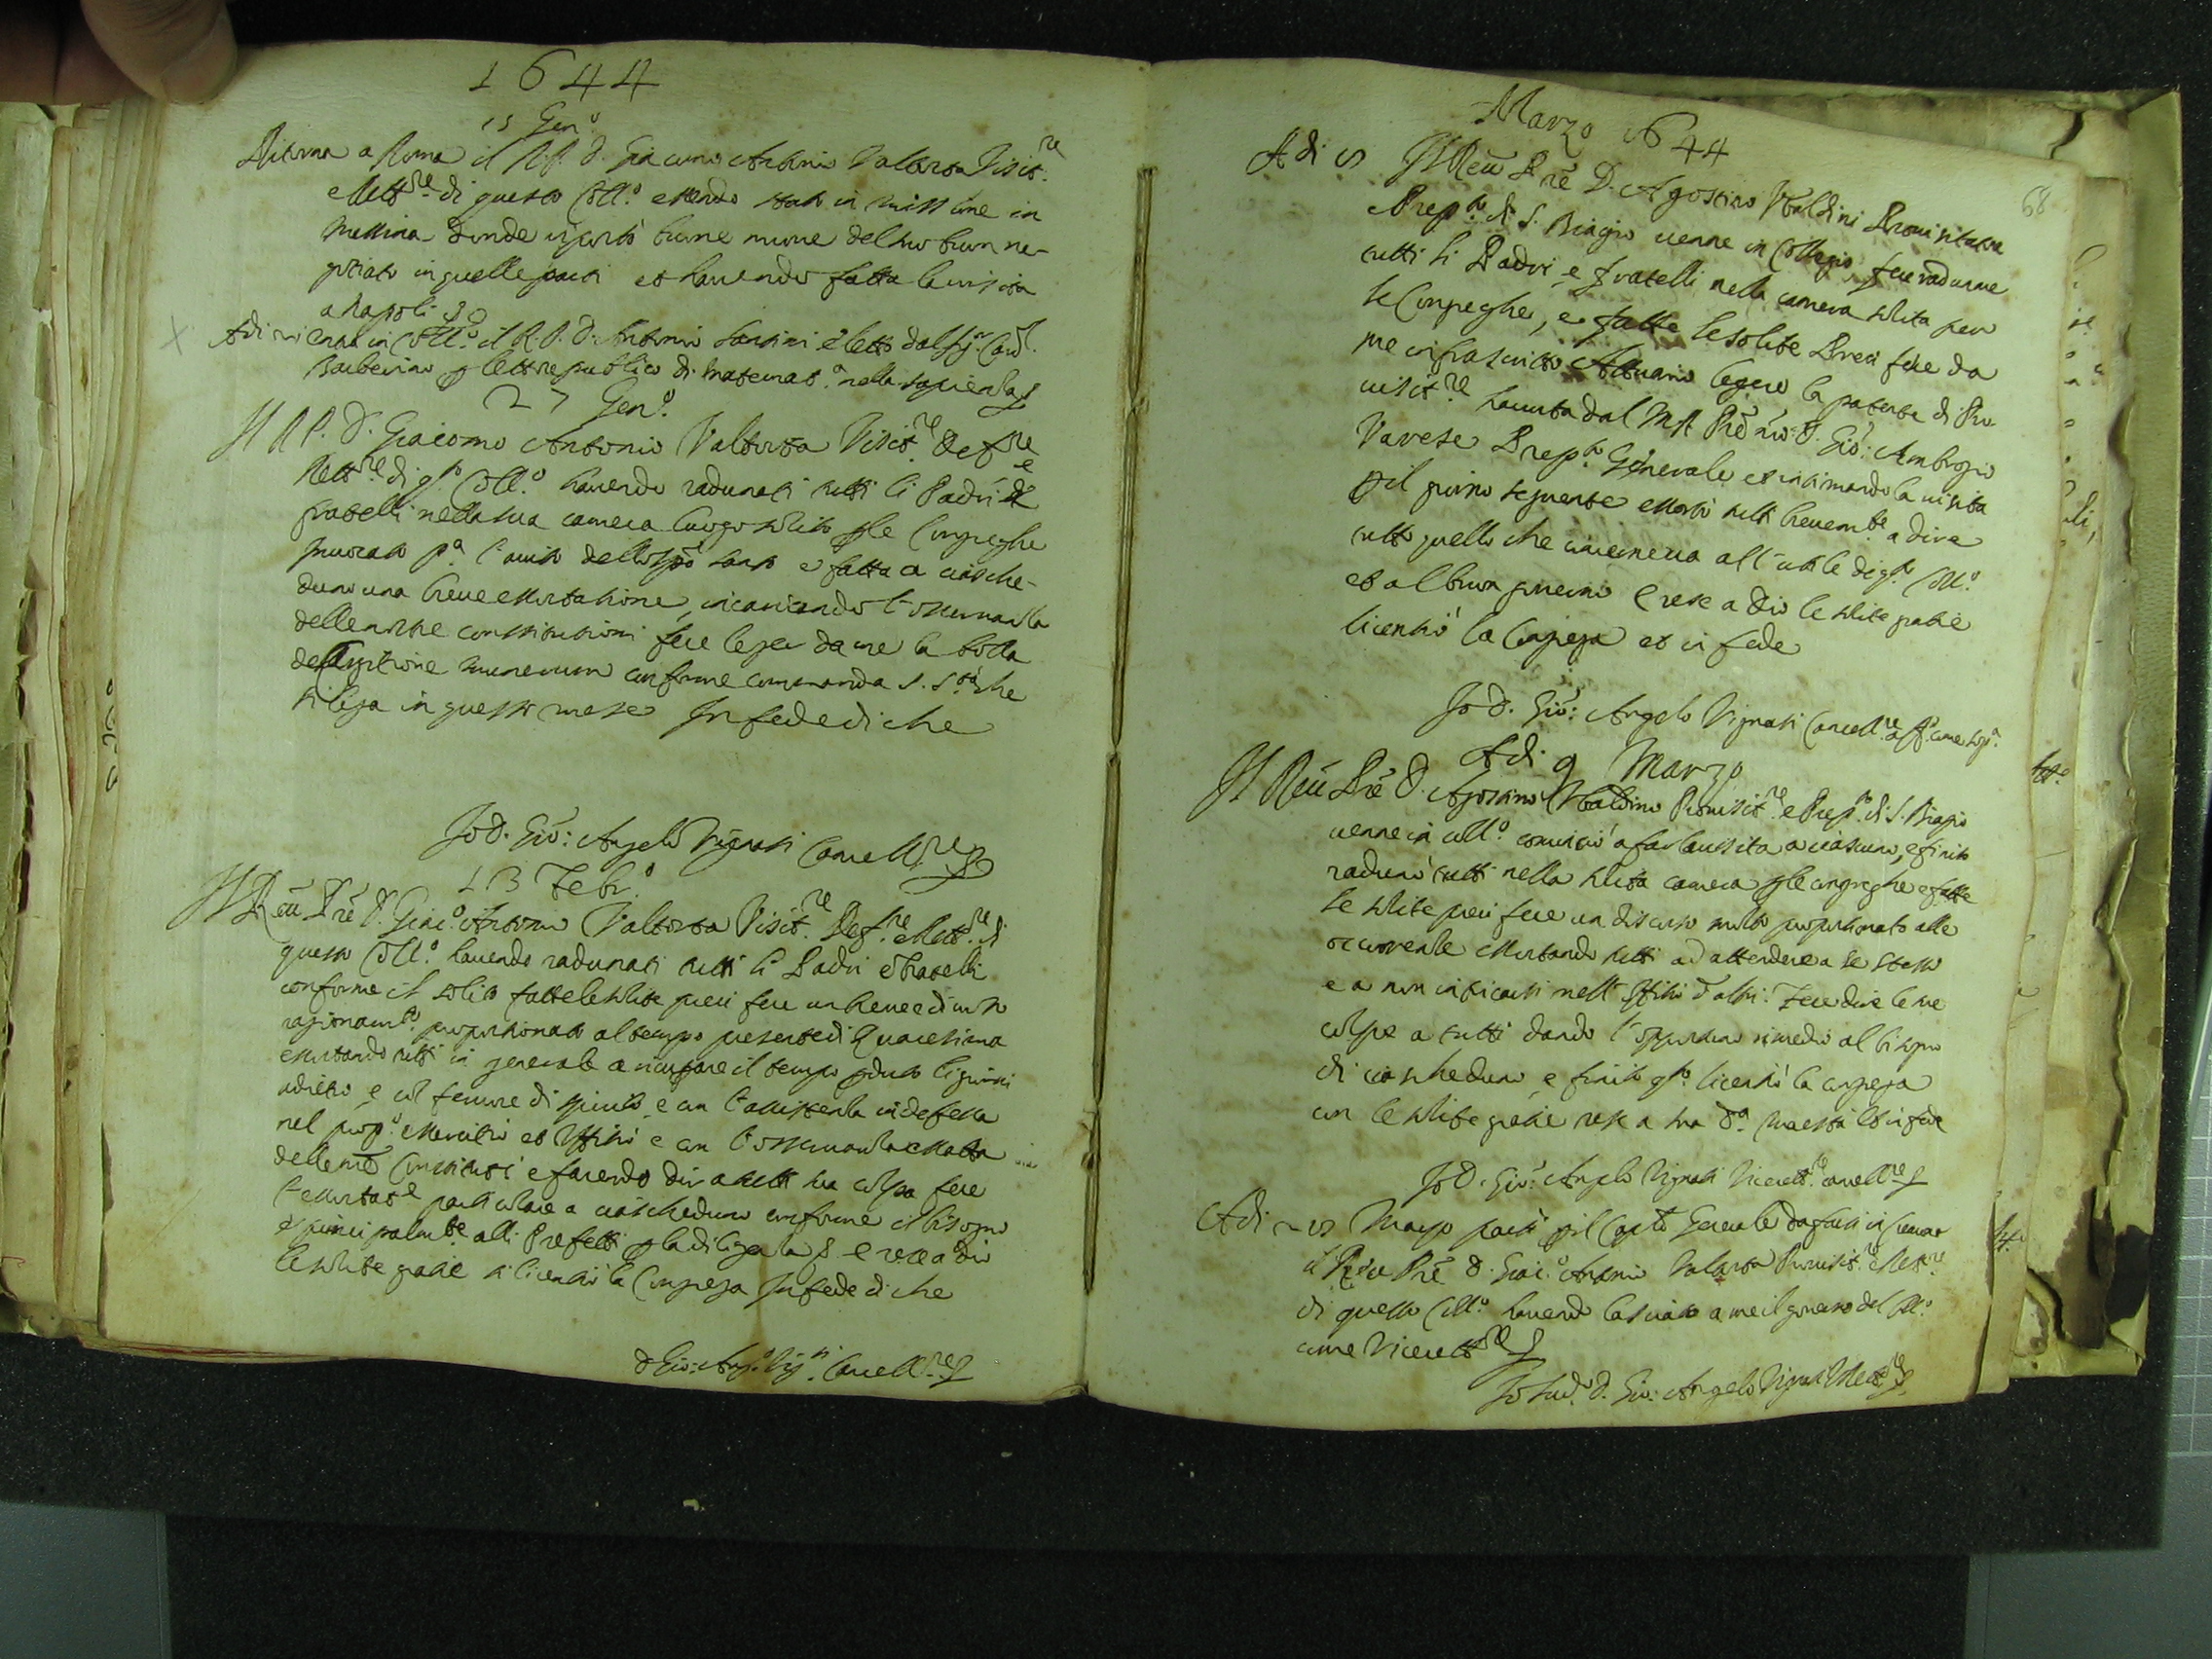 1644
15 Gen.o
Ritorna a Roma il R. P. D. Giacomo Antonio Valtorta Visit.re
e Rett.re di questo Coll.o essendo stato in missione in
Messina donde riportò buone nuove del suo buon ne-
gotiato in quelle parti et havendo fatta la visita
a Napoli
Adi 21 entrò in Coll.o il R. P. D. Antonio Santini eletto dal Sig.r Card.
Barberino p lettore publico di Matemat.a nella sapienza
27 Gen.o
Il R P. D. Giacomo Antonio Valtorta Visit.re Def.re e
Rett.re di q.to Coll.o havendo radunati tutti li Padri et
fratelli nella sua camera luogo solito p le Congreghe
invocato p.a l'aiuto dello Spo santo e fatta a ciasche-
duno una breve essortatione, incaricando l'osservanza
delle nostre constitutioni fece leger da me la bolla
de largitione munerum conforme commanda S. S.tà che
si lega in questo mese In fede di che
Io D. Gio: Angelo Vignati Cancell.re
13 Febr.o
Il Reu Pre D. Giac.o Antonio Valtorta Visit.re Def.re e Rett.re di
questo Coll.o havendo radunati tutti li Padri e Fratelli
conforme il solito fatte le solite preci fece un breve e divoto
ragionam.to proportionato al tempo presente di Quaresima
essortando tutti in generale a ricuperare il tempo pduto li giorni
adietro, e col fervore di spirito, e con l'assistenza indefessa
nel prop.o essercitio et Uffitio e con l'osservanza esatta
delle nre Constituti e facendo dir a tutti sua colpa fece
l'essortat.e particolare a ciascheduno conforme il bisogno
e principalm.te alli Prefetti p la diligenza e rese a Dio
le solite gratie si licentiò la Congrega In fede di che
D Gio: Ang.o Vig.ti Cancell.re
Marzo 1644
68
Adi 5 Il Reu Pre D. Agostino Ubaldini Provisitatore
e Prep.to di S. Biagio venne in Collegio, fece radunare
tutti li Padri, e fratelli nella camera solita per
le Congreghe, e fatte le solite Preci fece da
me infrascritto Attuario legere la patente di Pro-
visit.re havuta dal M R Pre nro D. Gio: Ambrogio
Varese Prep.to Generale et intimando la visita
p il giorno seguente essortò tutti brevem.te a dire
tutto quello che concerneva all'utile di q.to Coll.o
et al buon governo e rese a Dio le solite gratie
licentiò la Congrega et in fede
Io D. Gio: Angelo Vignati Cancell.re
Adi 9 Marzo
Il Reu Pre D. Agostino Ubaldino Provisit.re e Prep.to di S. Biagio
venne in coll.o cominciò a far la visita a ciascuno, e finito
radunò tutti nella solita camera p le congreghe e fatte
le solite preci fece un discorso molto proportionato alle
occorrenze essortando tutti ad attendere a se stesso
e a non intricarsi nell'Uffitio d'altri. Fece dire le sue
colpe a tutti dando l'opportuno rimedio al bisogno
di ciascheduno, e finito q.to licentiò la congrega
con le solite gratie rese a sua D.a Maestà et in fede
Io D. Gio: Angelo Vignati Vicerett.re cancell.re
Adi 25 Marzo partì p il Capto Generale da farsi in
il Reu Pre D. Giac.o Antonio Valtorta Provisit.re e Rett.re
di questo Coll.o havendo lasciato a me il governo del Coll.o
come Vicerett.re
Io sud.o D. Gio: Angelo Vignati